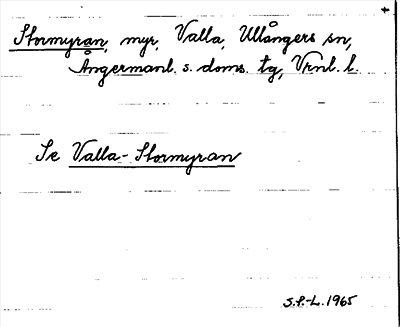 Stormyran, myr, Valla, Ullångers sn,
Ångermanl. s. doms. tg, Vrnl. l.
Se Valla-Stormyran
S.P.-L. 1965